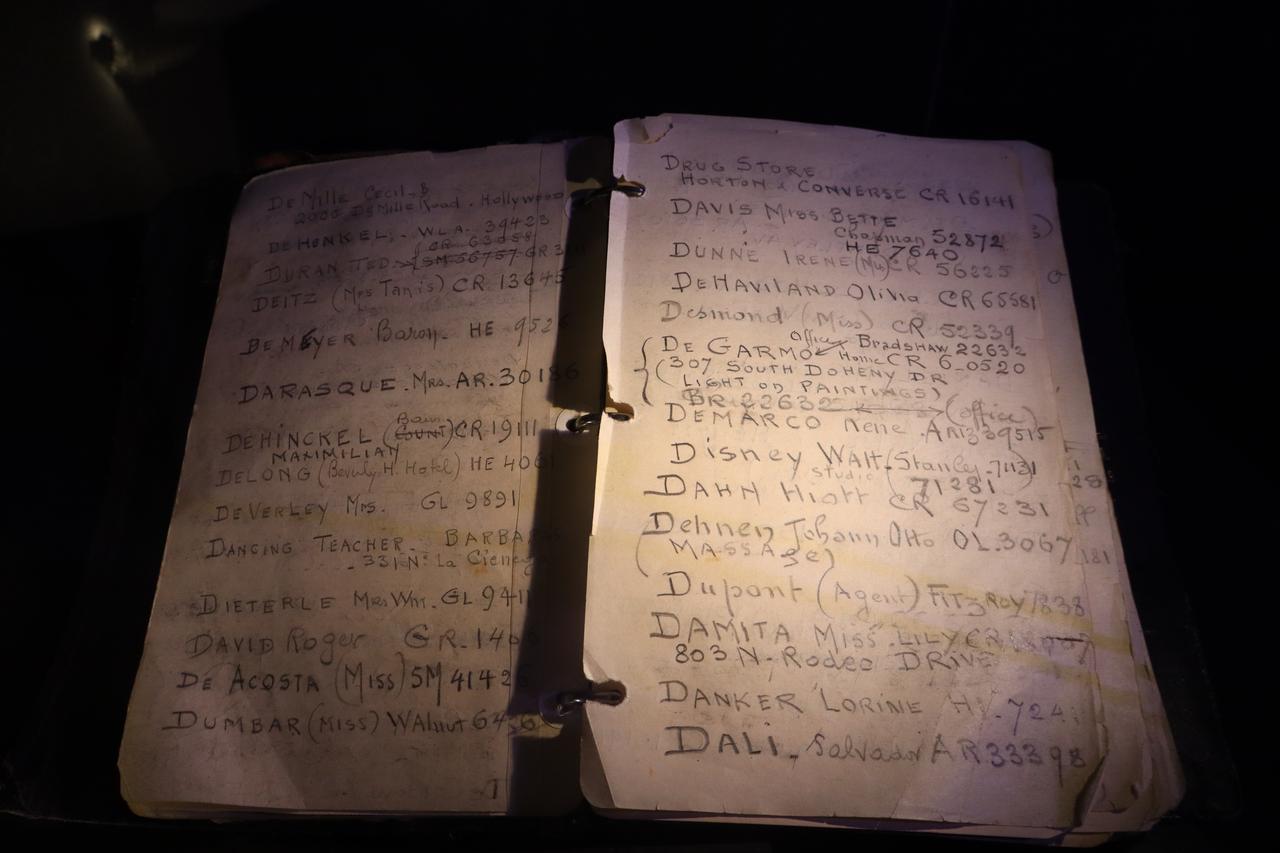 De Mille Cecil. B
2000 De Mille Road. Hollywood
DEHENKEL. W.L.A. 39423
CR 63858
DURAN TED. SM 56757 GR
DEITZ (Mrs Tanis) CR 13645
DE MEYER Baron. HE 952
DARASQUE. Mrs. AR. 30186
Baron
DEHINCKEL (COUNT) CR 19111
MAXIMILIAN
DELONG (Beverly H. Hotel) HE 4061
DEVERLEY Mrs. GL 9891
DANCING TEACHER. BARBA
- 331 N. La Cieneg
DIETERLE Mrs Wm. GL 9411
DAVID Roger GR. 140
DE ACOSTA (Miss) SM 4142
DUMBAR (MISS) WAlnut 6436
DRUG STORE
HORTON & CONVERSE CR 16141
DAVIS MISS BETTE
Chapman 52872
HE 7640
DUNNE IRENE (Mu) CR 56225
DEHAVILAND Olivia CR 65581
Desmond (Miss) CR 52339
Office Bradshaw 22632
DE GARMO Home CR 6-0520
(307 SOUTH DOHENY DR
LIGHT ON PAINTINGS)
BR 22632 (office)
DEMARCO Rene. AR 339515
DISNEY WALT. (Stanley. 71131
studio 71281
DAHN Hiott CR 67231
Dehnen Johann Otto OL. 3067
(MASSAge)
Dupont (Agent) FITZROY 7838
DAMITA MISS LILY CR
803 N. Rodeo DRIVE
DANKER LORINE H . 724
DALI - Salvador AR 33398